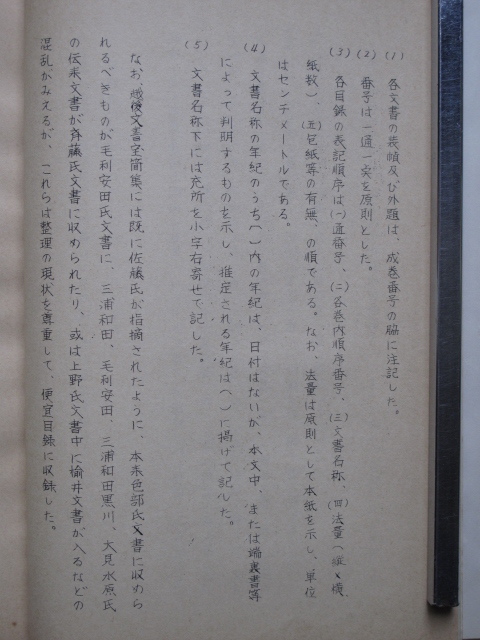 (1) 各文書の表幀及び外題は、成巻番号の脇に注記した。
(2) 番号は一通一点を原則とした。
(3) 各目録の表記順序は(一)通番号、(二)各巻内順序番号、(三)文書名称、(四)法量(縦×横、
紙数)、(五)包紙等の有無、の順である。なお、法量は原則として本紙を示し、単位
はセンチメートルである。
(4) 文書名称の年紀のうち( )内の年紀は、日付はないが、本文中、または端裏書等
によって判明するものを示し、推定される年紀は〔 〕に掲げて記した。
(5) 文書名称下には充所を小字右寄せで記した。
なお、越後文書宝簡集には既に佐藤氏が指摘されたように、本来色部氏文書に収めら
れるべきものが毛利安田氏文書に、三浦和田、毛利安田、三浦和田黒川、大見水原氏
の伝来文書が斉藤氏文書に収められたり、或は上野氏文書中に楡井文書が入るなどの
混乱がみえるが、これらは整理の現状を尊重して、便宜目録に収録した。